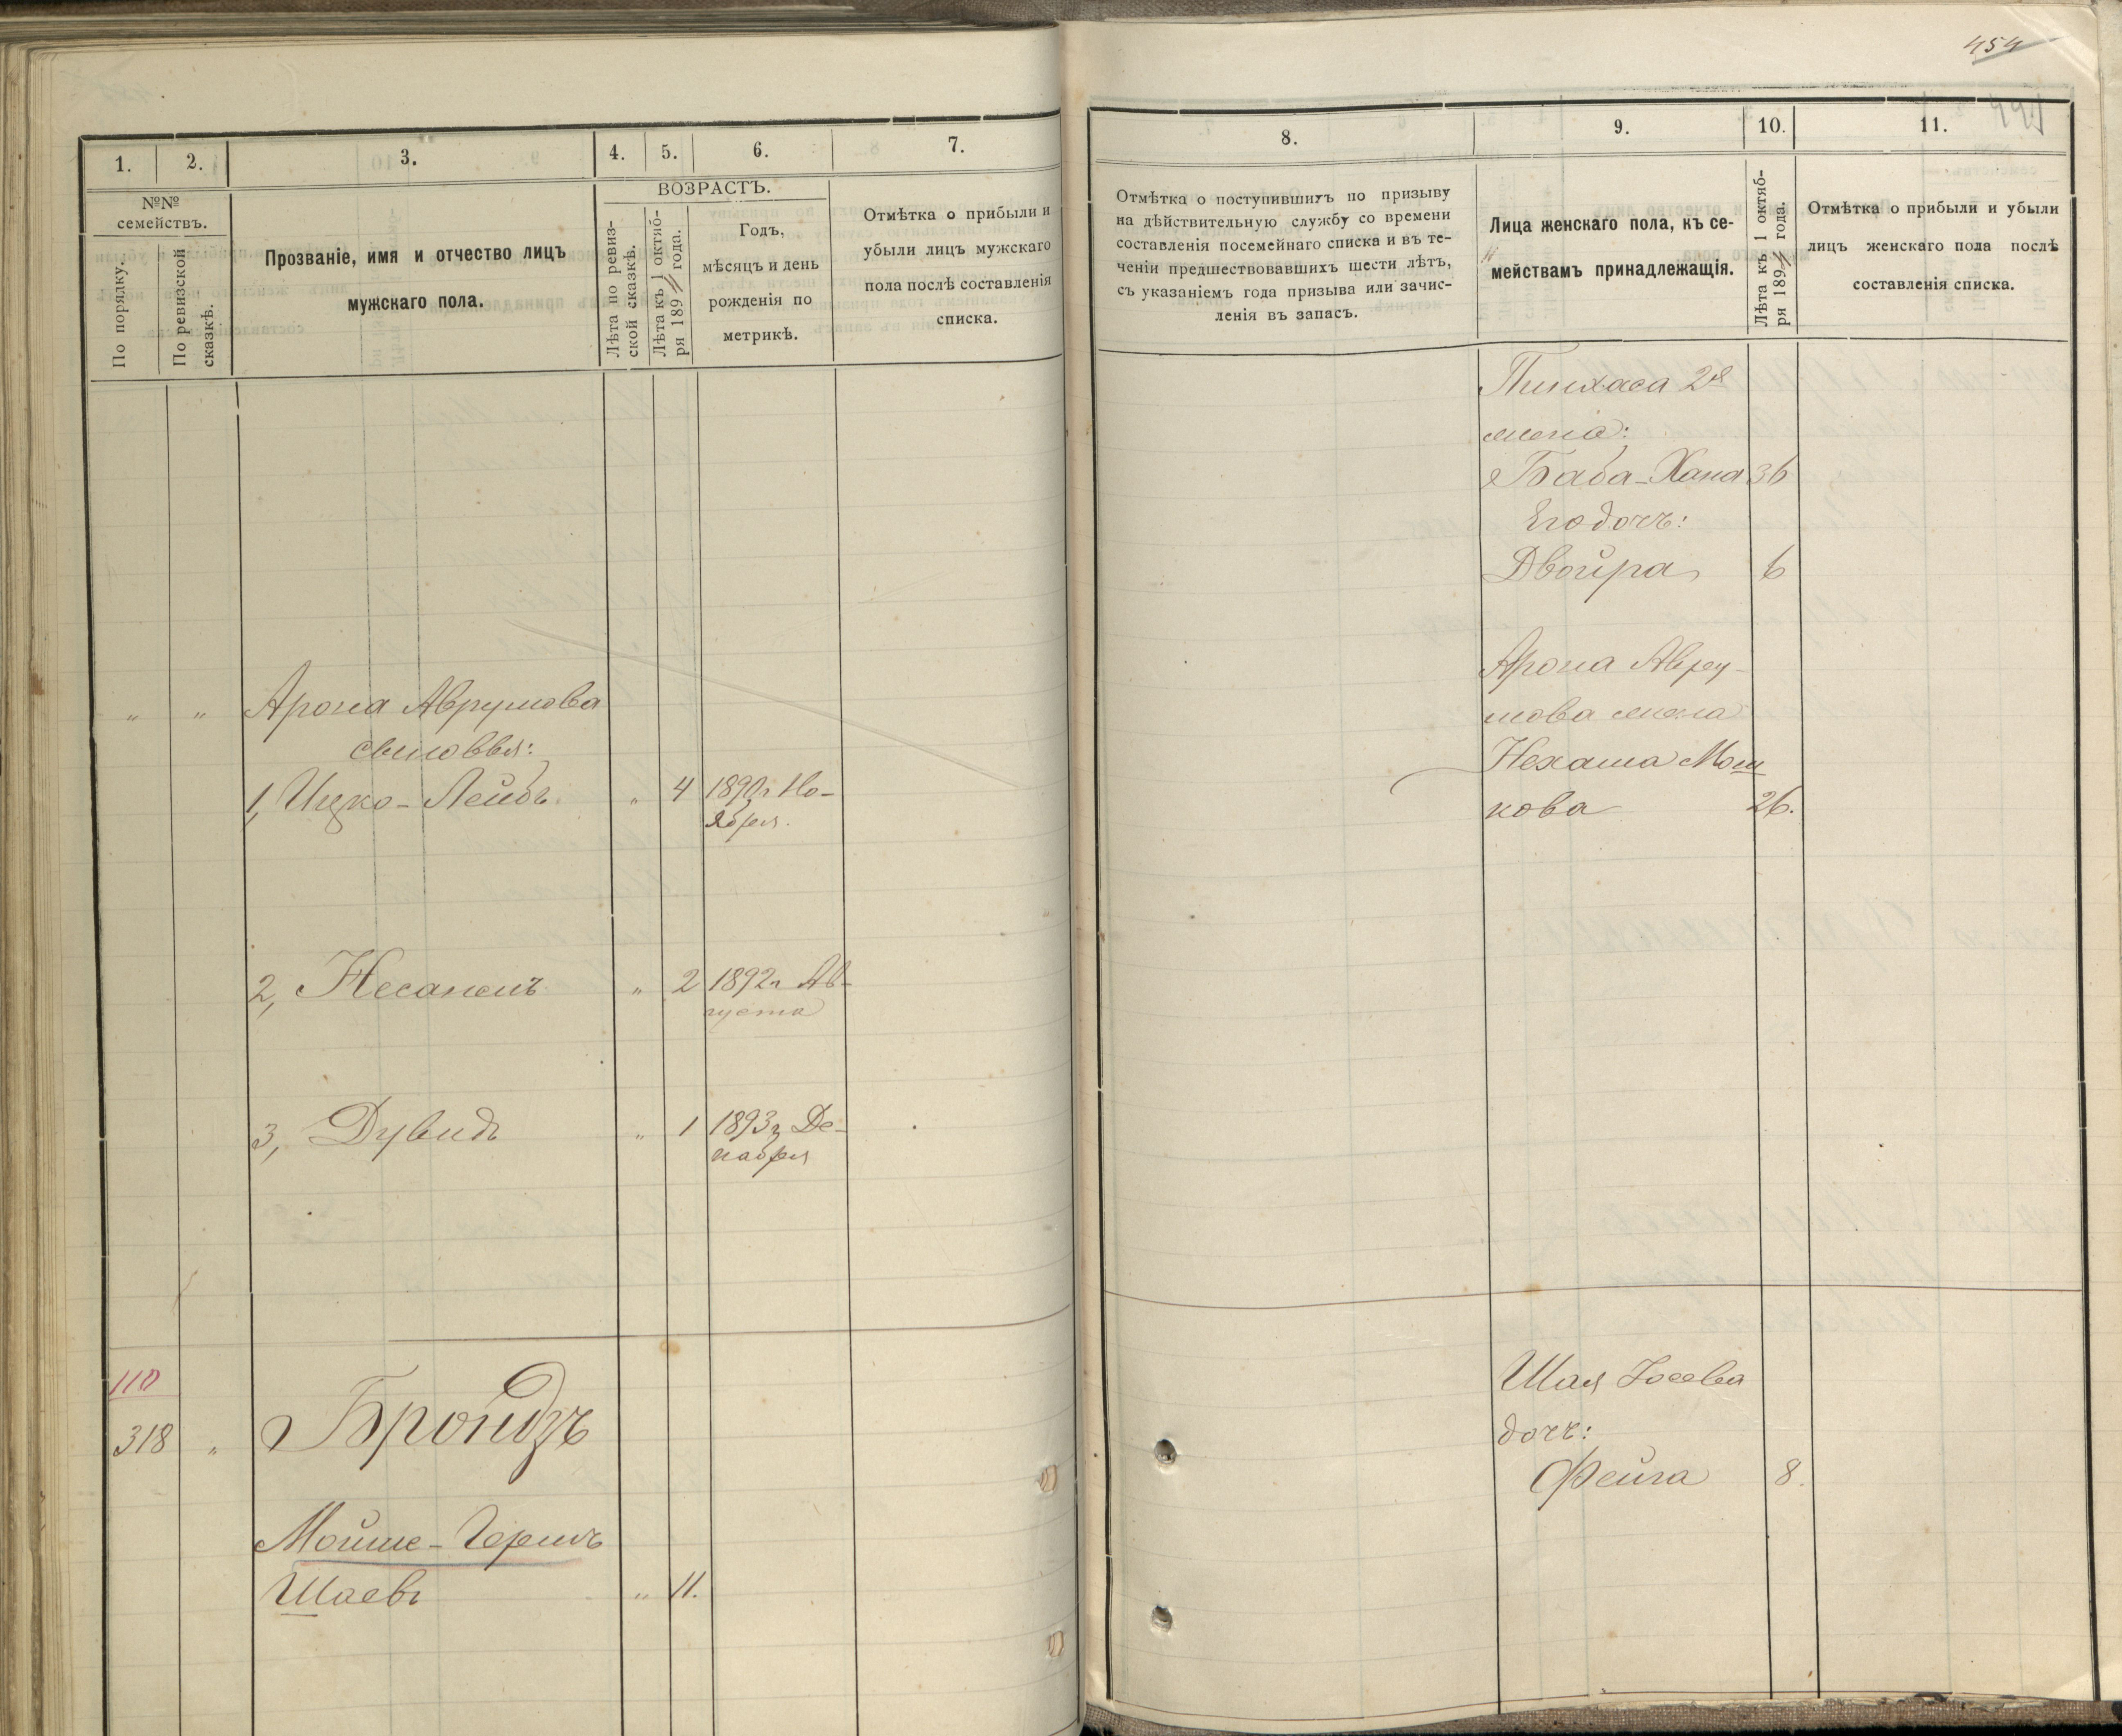 454
1.
2.
3.
4.
5.
6.
7.
№№
семействъ.
По порядку.
По ревизской
сказкѣ.
Прозваніе, имя и отчество лицъ
мужскаго пола.
ВОЗРАСТЪ.
Лѣта по ревиз-
ской сказкѣ.
Лѣта къ 1 октяб-
ря 189 года.
Годъ,
мѣсяцъ и день
рожденія по
метрикѣ.
Отмѣтка о прибыли и
убыли лицъ мужскаго
пола послѣ составленія
списка.
" " Арона Аврумова
сыновья:
1, Ицко-Лейбъ " 4 1890г Но-
ября.
2, Несанель " 2 1892г Ав-
густа
3, Дувидъ " 1 1893г Де-
кабря
110
318 " Бройдзъ
Мойше-Гершъ
Шаевъ " 11.
8.
9.
10.
11.
Отмѣтка о поступившихъ по призыву
на дѣйствительную службу со времени
составленія посемейнаго списка и въ те-
ченіи предшествовавшихъ шести лѣтъ,
съ указаніемъ года призыва или зачис-
ленія въ запасъ.
Лица женскаго пола, къ се-
мействамъ принадлежащія.
Лѣта къ 1 октяб-
ря 189 года.
Отмѣтка о прибыли и убыли
лицъ женскаго пола послѣ
составленія списка.
Пинхаса 2я
жена:
Баба-Хана 36
Его дочь:
Двойра 6
Арона Авру-
мова жена
Нехама Мош
кова 26.
Шая Іосева
дочь:
Фейга 8.